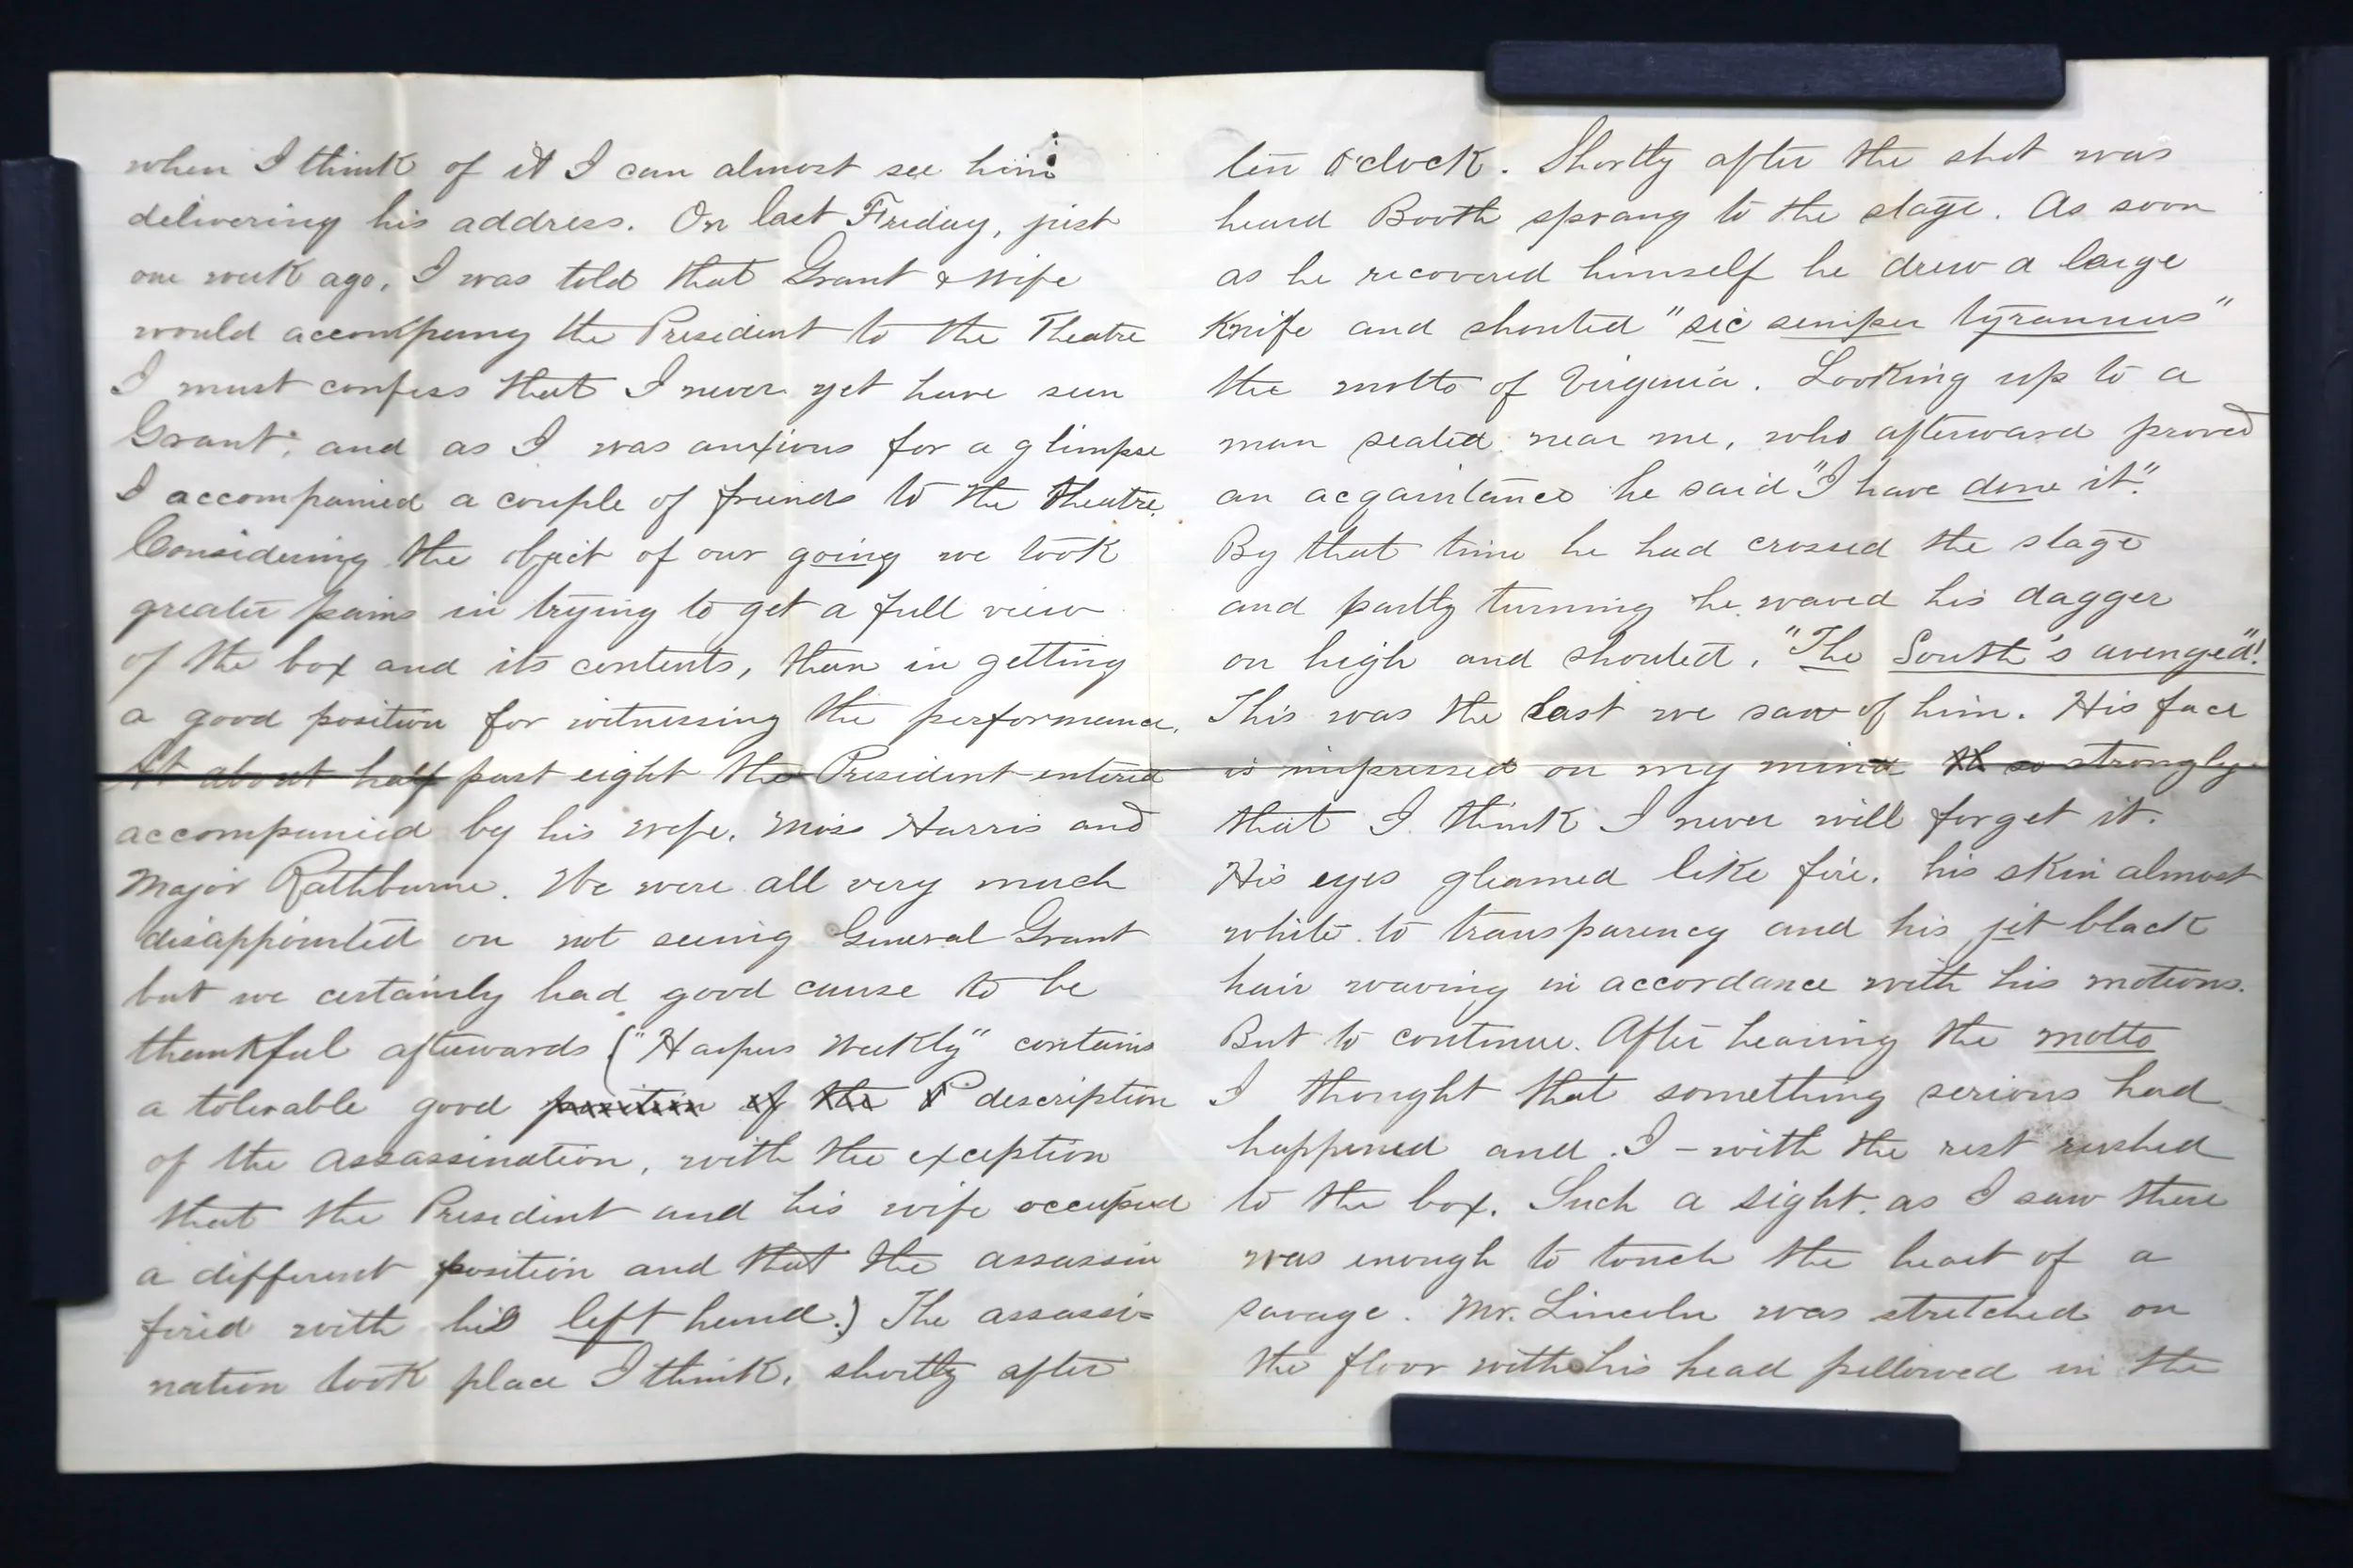 when I think of it I can almost see him
delivering his address. On last Friday, just
one week ago, I was told that Grant & wife
would accompany the President to the Theatre
I must confess that I never yet have seen
Grant, and as I was anxious for a glimpse
I accompanied a couple of friends to the theatre.
Considering the object of our going we took
greater pains in trying to get a full view
of the box and its contents, than in getting
a good position for witnessing the performance.
At about half past eight the President entered
accompanied by his wife, Miss Harris and
Major Rathburne. We were all very much
disappointed on not seeing General Grant
but we certainly had good cause to be
thankful afterwards ("Harpers Weekly" contains
a tolerable good position of the P description
of the assassination, with the exception
that the President and his wife occupied
a different position and that the assassin
fired with his left hand.) The assassi=
nation took place I think, shortly after
ten o'clock. Shortly after the shot was
heard Booth sprang to the stage. As soon
as he recovered himself he drew a large
knife and shouted "sic semper tyrannus"
the motto of Virginia. Looking up to a
man seated near me, who afterward proved
an acqaintance he said "I have done it".
By that time he had crossed the stage
and partly turning he waved his dagger
on high and shouted, "The South's avenged"!
This was the last we saw of him. His face
is impressed on my mind th so strongly
that I think I never will forget it.
His eyes gleamed like fire, his skin almost
white to transparency and his jet black
hair waving in accordance with his motions.
But to continue. After hearing the motto
I thought that something serious had
happened and I - with the rest rushed
to the box. Such a sight as I saw there
was enough to touch the heart of a
savage. Mr. Lincoln was stretched on
the floor with his head pillowed in the